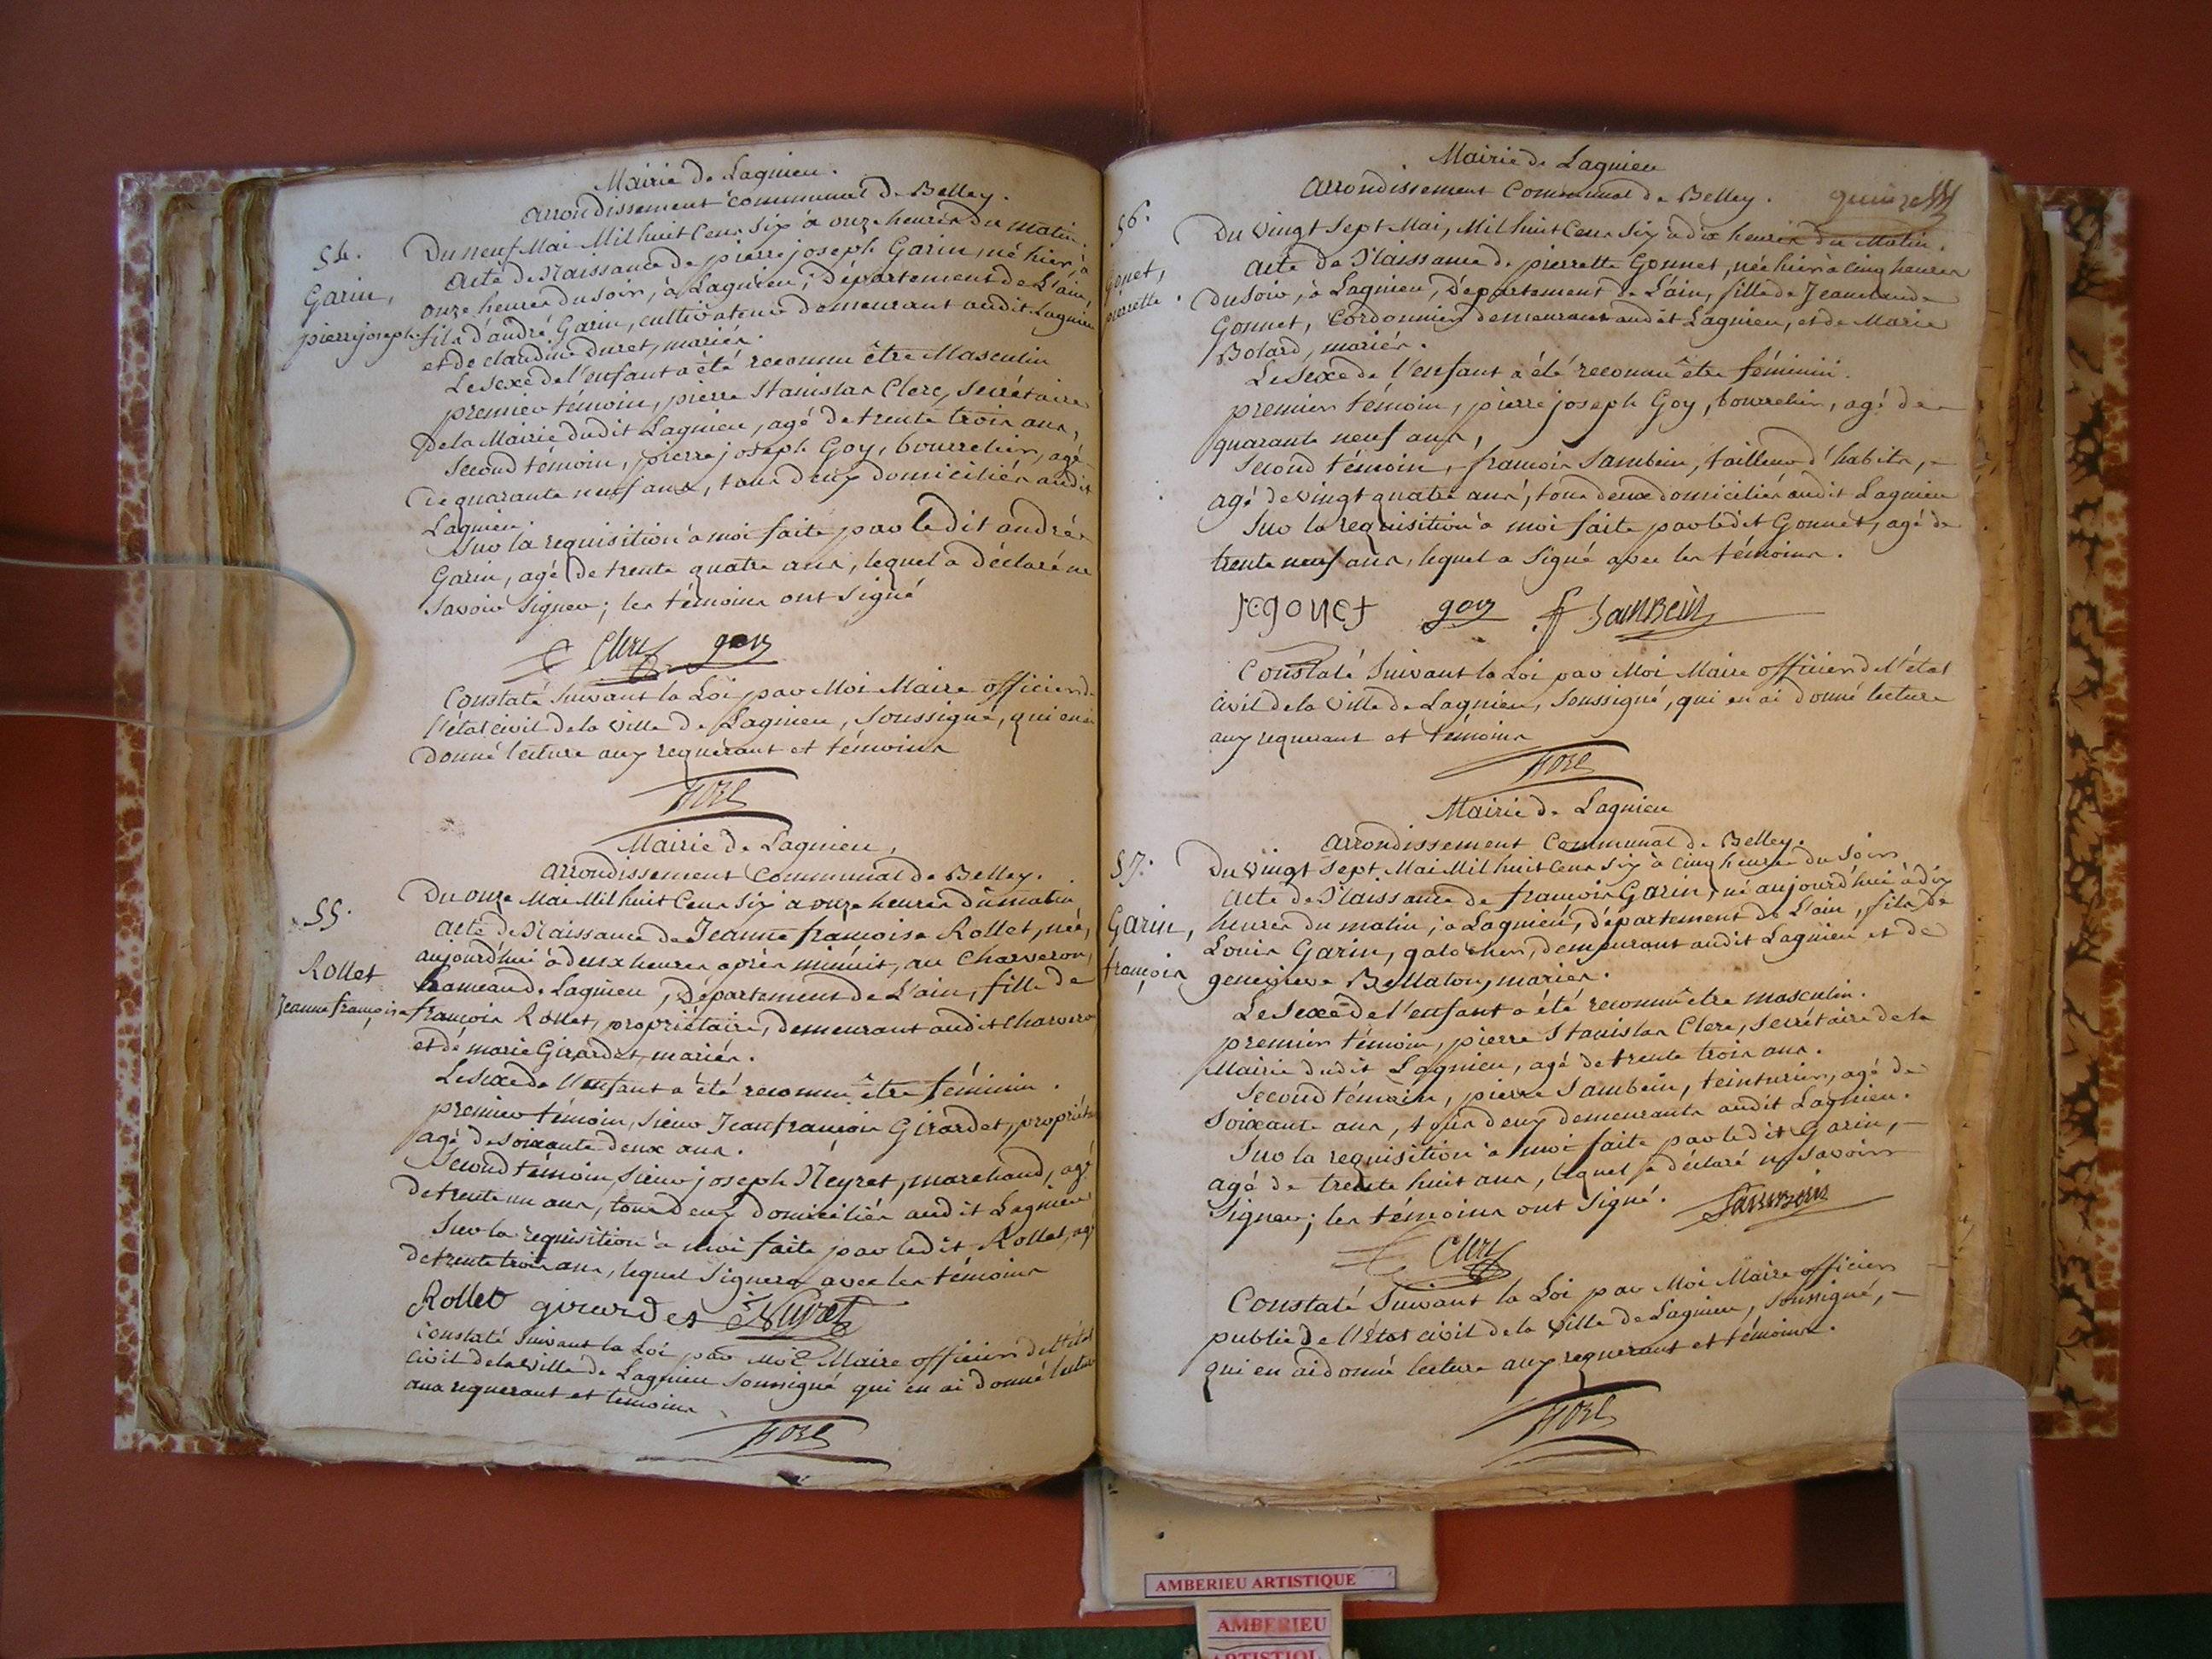 Mairie de Lagnieu.
arrondissement communal de Belley.
54.
Garin,
pierre joseph
Du neuf Mai Mil huit Cent Six à onze heures du matin.
acte de Naissance de pierre joseph Garin, né hier, à
onze heures du soir, à Lagnieu, Département de L'ain,
fils d'andré Garin, cultivateur demeurant audit Lagnieu
et de claudine duret, mariés.
Le sexe de l'enfant a été reconnu être Masculin
premier témoin, pierre Stanislas Clerc, Secrétaire
de la Mairie dudit Lagnieu, agé de trente trois ans,
Second témoin, pierre joseph Goy, bourrelier, agé
de quarante neuf ans, tous deux domiciliés audit
Lagnieu.
Sur la requisition à moi faite par le dit andré
Garin, agé de trente quatre ans, lequel a déclaré ne
Savoir Signer; les témoins ont Signé
Clerc goy
Constaté Suivant la Loi par Moi Maire officier de
l'état civil de la ville de Lagnieu, Soussigné, qui en ai
donné lecture aux requérant et témoins
Mairie de Lagnieu,
arrondissement Communal de Belley.
55.
Rollet
Jeanne françoise
Du onze Mai Mil huit Cent Six à onze heures du matin
acte de Naissance de Jeanne françoise Rollet, née,
aujourd'hui à deux heures après minuit, au Charveron,
hameau de Lagnieu, Département de L'ain, fille de
françois Rollet, propriétaire, demeurant audit Charvero
et de marie Girardet, mariés.
Le sexe de l'enfant a été reconnu être féminin.
premier témoin, Sieur Jean françois Girardet, propriéta
agé de soixante deux ans.
Second témoin, Sieur joseph Neyret, marchand, agé
de trente un ans, tous deux domiciliés audit Lagnieu
Sur la requisition à moi faite par ledit Rollet, agé
de trente trois ans, lequel Signera avec les témoins
Rollet girardet Neyret
Constaté Suivant la Loi par Moi Maire officier de l'état
civil de la ville de Lagnieu Soussigné qui en ai donné lecture
aux requerant et témoins
Mairie de Lagnieu
arrondissement Communal de Belley.
56.
Gonet,
pierrette.
Du vingt Sept Mai, Mil huit Cent Six à dix heures du Matin.
acte de Naissance de pierrette Gonnet, née hier à cinq heures
du soir, à Lagnieu, Département de L'ain, fille de Jean claude
Gonnet, Cordonnier demeurant audit Lagnieu, et de Marie
Bolard, mariés.
Le sexe de l'enfant a été reconnu être féminin.
premier témoin, pierre joseph Goy, bourrelier, agé de
quarante neuf ans,
Second témoin, françois Sambein, tailleur d'habits,
agé de vingt quatre ans, tous deux domiciliés audit Lagnieu
Sur la requisition à moi faite par ledit Gonnet, agé de
trente neuf ans, lequel a Signé avec les témoins.
gonet goy f Sambein
Constaté Suivant la Loi par Moi Maire officier de l'état
civil de la ville de Lagnieu, Soussigné, qui en ai donné lecture
aux requerant et témoins
Mairie de Lagnieu
arrondissement Communal de Belley.
57.
Garin,
françois
Du vingt Sept Mai Mil huit Cent Six à cinq heures du Soir
acte de Naissance de françois Garin, né aujourd'hui à dix
heures du matin, à Lagnieu, département de L'ain, fils de
Louis Garin, galocher, demeurant audit Lagnieu et de
genevieve Bellaton, mariés.
Le sexe de l'enfant a été reconnu être masculin.
premier témoin, pierre Stanislas Clerc, Secrétaire de la
Mairie dudit Lagnieu, agé de trente trois ans.
Second témoin, pierre Sambein, teinturier, agé de
soixante ans, tous deux demeurants audit Lagnieu.
Sur la requisition à moi faite par ledit Garin,
agé de trente huit ans, lequel a déclaré ne Savoir
Signer; les témoins ont Signé. Sambein
Clerc
Constaté Suivant la Loi par Moi Maire officier
public de l'état civil de la ville de Lagnieu, Soussigné,
qui en ai donné lecture aux requerant et témoins.
AMBERIEU ARTISTIQUE
AMBERIEU